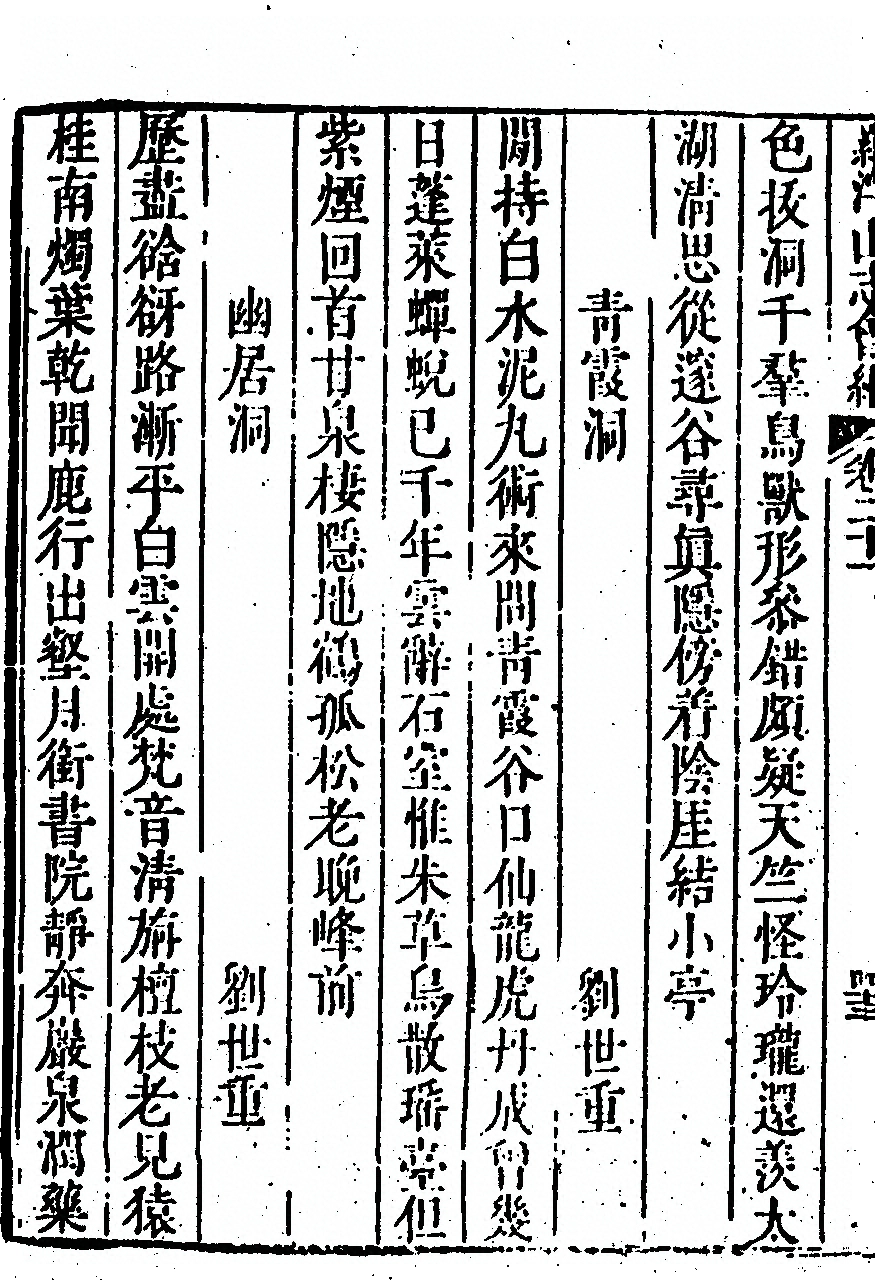 羅浮山志會編 卷二十一
色拔洞千羣鳥獸形參錯頗疑天竺怪玲瓏還羨太
湖清思從邃谷尋眞隱傍着陰崖結小亭
青霞洞 劉世重
閒持白水泥丸術來問青霞谷口仙龍虎丹成曾幾
日蓬萊蟬蛻已千年雲辭石室惟朱草鳥散瑤臺但
紫煙回首甘泉棲隱地鶴孤松老晚峰前
幽居洞 劉世重
歷盡谽谺路漸平白雲開處梵音清旃檀枝老見猿
桂南燭葉乾聞鹿行出壑月銜書院靜奔巖泉潤藥